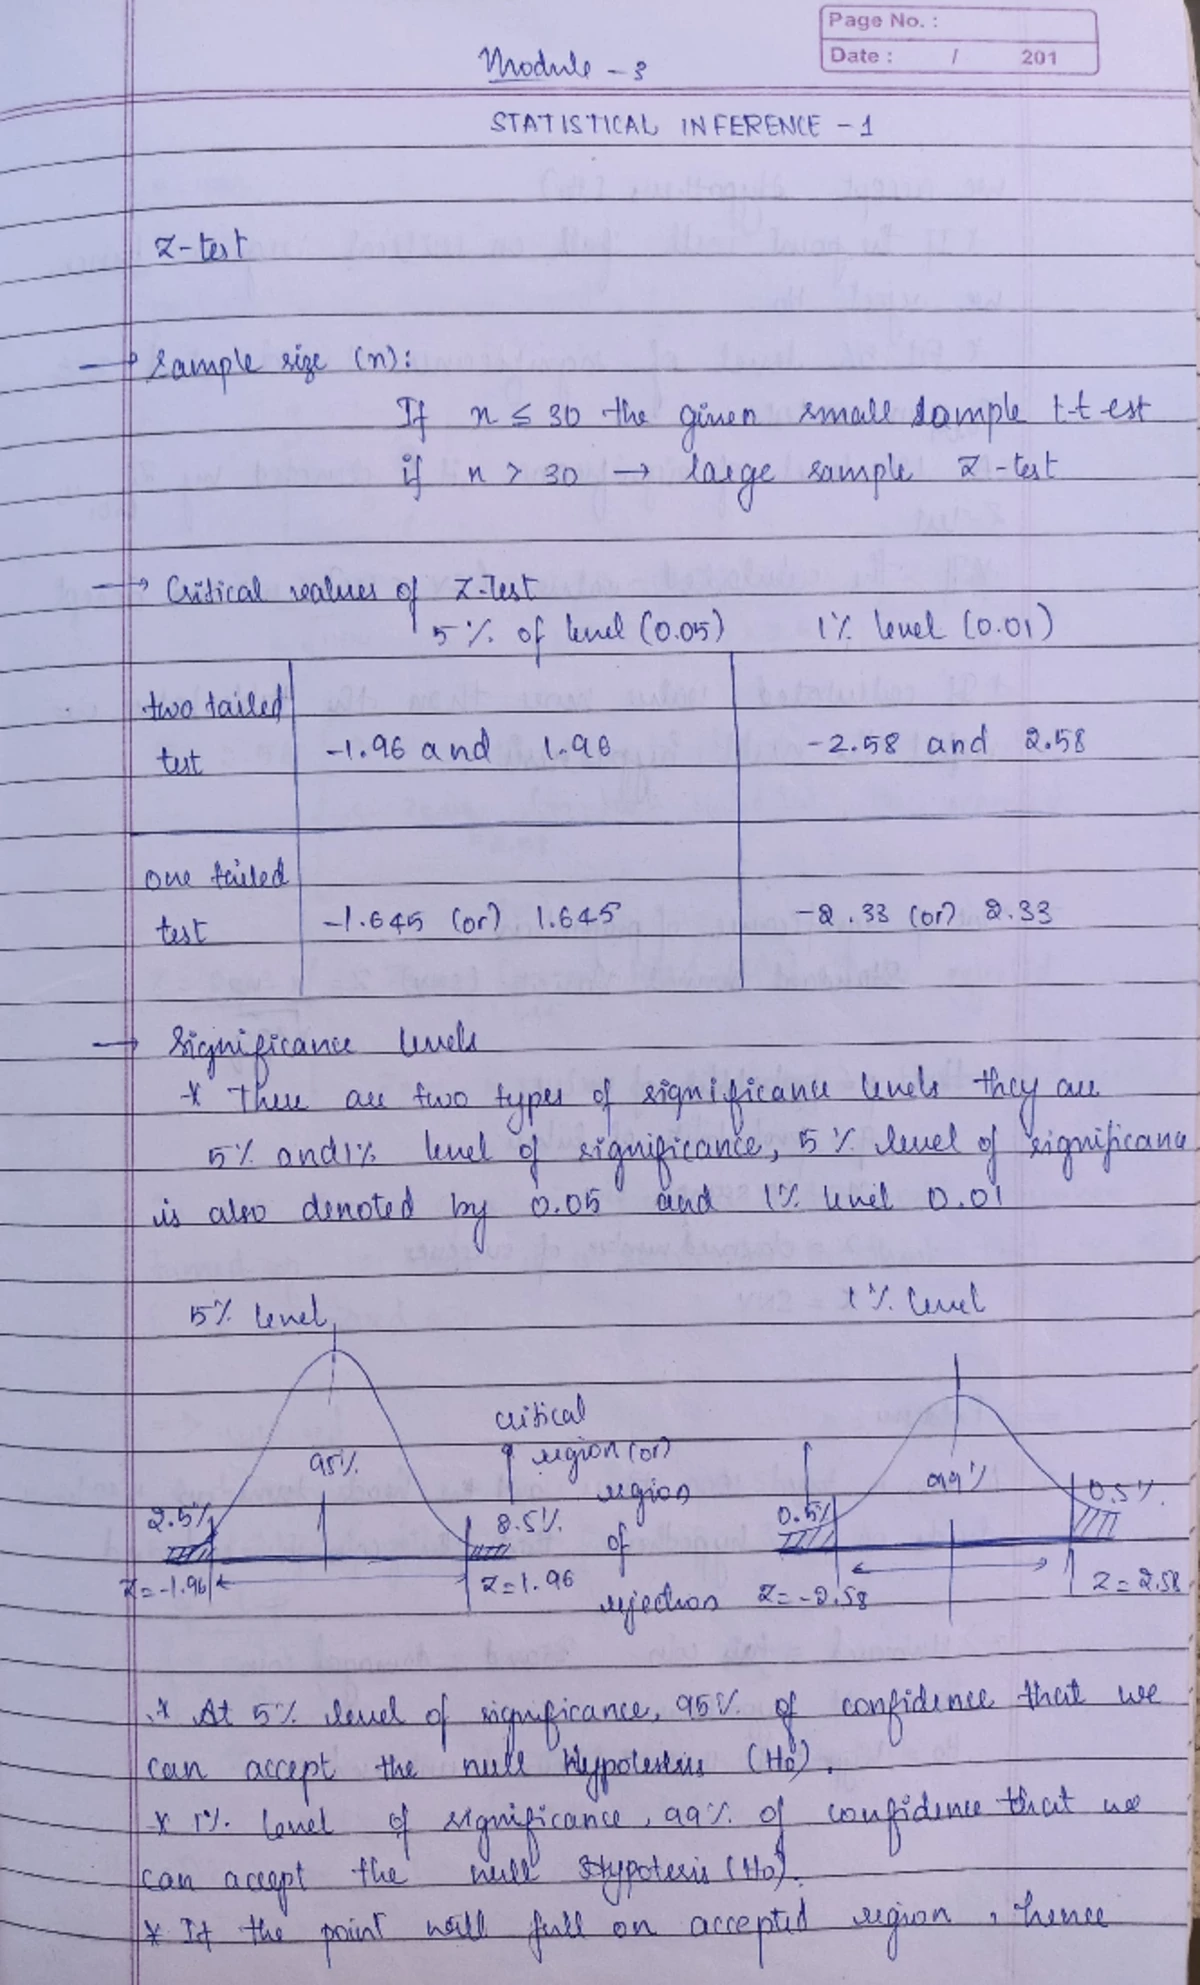 Page No. :
Date : / 201
Module - 3
STATISTICAL INFERENCE - 1
Z-test
→ Sample size (n):
If n ≤ 30 the given small sample t-t est
if n > 30 → large sample Z-test
→ Critical values of Z-Test
5% of level (0.05) 1% level (0.01)
two tailed
test -1.96 and 1.96 -2.58 and 2.58
one tailed
test -1.645 (or) 1.645 -2.33 (or) 2.33
→ Significance levels
* There are two types of significance levels they are
5% and 1% level of significance, 5% level of significance
is also denoted by 0.05 and 1% level 0.01
5% level 1% level
critical
region (or)
region
of
rejection
95%
2.5% 2.5%
Z=-1.96 Z=1.96
99%
0.5% 0.5%
Z=-2.58 Z=2.58
* At 5% level of significance, 95% of confidence that we
can accept the null Hypotesis (H0).
* 1% level of significance, 99% of confidence that we
can accept the null Hypotesis (H0).
* If the point will full on accepted region, hence